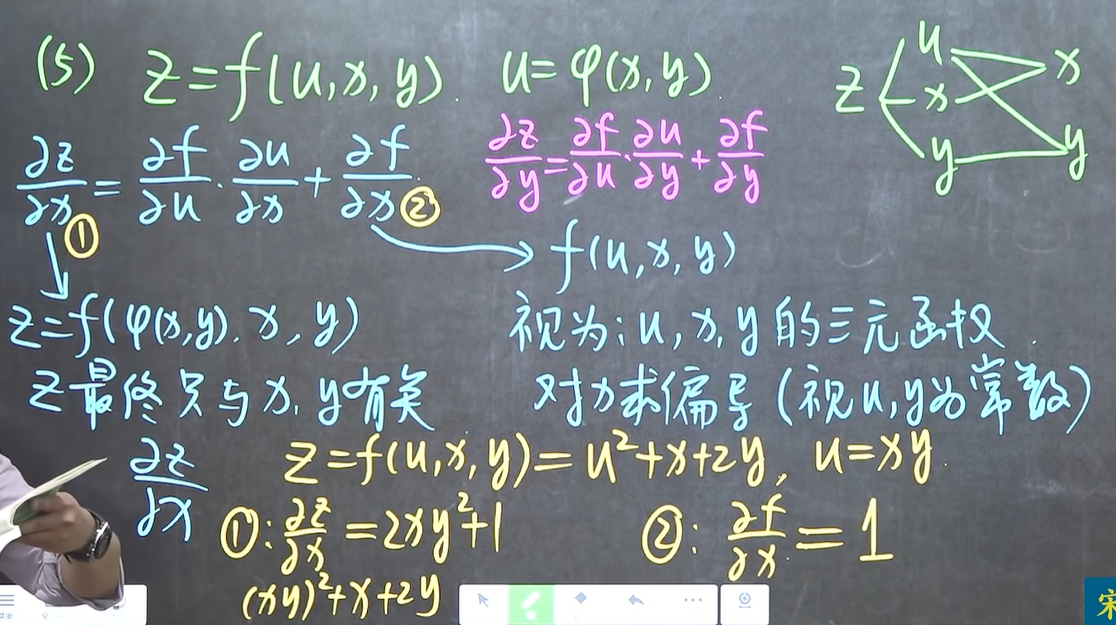 (5) z=f(u,x,y). u=φ(x,y)
z u x y x y
∂z/∂x = ∂f/∂u · ∂u/∂x + ∂f/∂x. ∂z/∂y = ∂f/∂u · ∂u/∂y + ∂f/∂y
① ②
f(u,x,y)
z=f(φ(x,y).x,y) 视为:u,x,y的三元函权.
z最终只与x,y有关 对x求偏导(视u,y为常数)
∂z/∂x z=f(u,x,y)=u²+x+2y, u=xy.
①: ∂z/∂x =2xy²+1 ②: ∂f/∂x =1
(xy)²+x+2y
宋